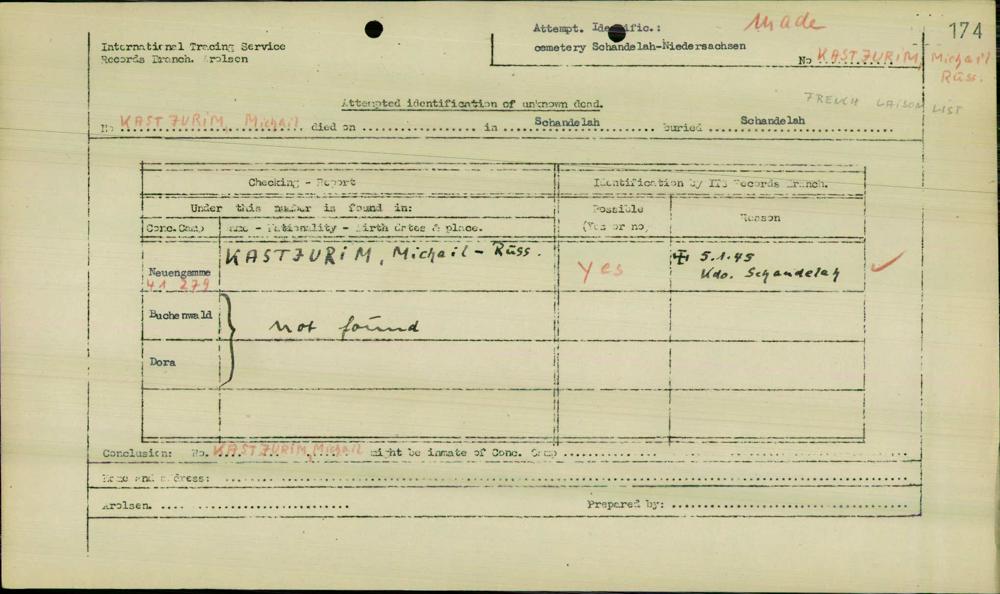 Attempt. Identific.: made 174
International Tracing Service
Records Branch. Arolsen
cemetery Schandelah-Niedersachsen
No KASTJURIM, Michail
Russ.
FRENCH LIAISON LIST
Attempted identification of unknown dead.
No KASTJURIM, Michail died on ............... in ..... Schandelah ..... buried ..... Schandelah .....
Checking - Report
Identification by ITS Records Branch.
Under this number is found in:
Possible
(Yes or no)
Reason
Conc.Camp
Name - Nationality - Birth dates & place.
Neuengamme
41 279
KASTJURIM, Michail - Russ.
yes
5.1.45
Kdo. Schandelah
Buchenwald
not found
Dora
Conclusion: No. KASTJURIM, Michail might be inmate of Conc. Camp ...............
Name and address: ...............
Arolsen. ............... Prepared by: ...............